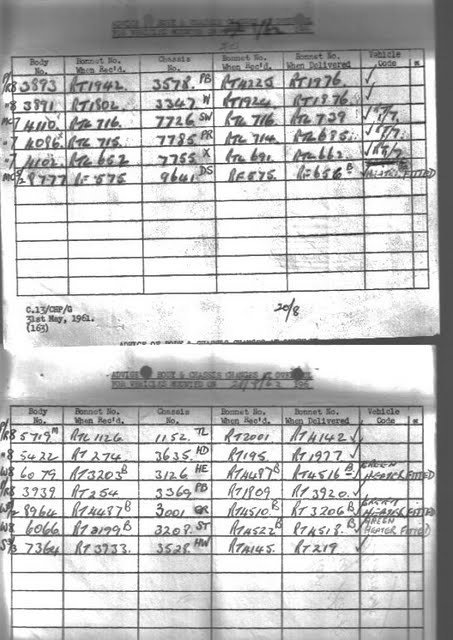 ADVICE BODY & CHASSIS CHANGES
FOR VEHICLES MOUNTED ON
Body No. Bonnet No. When Rec'd. Chassis No. Bonnet No. When Rec'd. Bonnet No. When Delivered Vehicle Code *
R8 3893 RT1942 3578 PB RT4225 RT1976 ✓
"8 3891 RT1802 3347 W RT1924 RT1876 ✓
7 4110 RTL 716 7726 SW RTL 716 RTL 739 ✓
"7 4086 X RTL 715 7785 PR RTL 714 RTL 685 ✓
"7 4102 RTL 652 7755 X RTL 691 RTL 662 ✓
8777 RF 575 9641 DS RF 575 RF 656 B ✓ HEATER FITTED
C.13/CHP/G
31st May, 1961.
(163)
20/8
ADVICE OF BODY & CHASSIS CHANGES AT
ADVICE BODY & CHASSIS CHANGES AT OVER
FOR VEHICLES MOUNTED ON 196
Body No. Bonnet No. When Rec'd. Chassis No. Bonnet No. When Rec'd. Bonnet No. When Delivered Vehicle Code *
R8 5719 M RTL 1126 1152 TL RT2001 RT4142 ✓
"8 5422 RT 274 3635 HD RT195 RT1977 ✓
W8 6079 RT3203 B 3126 HE RT4487 B RT4516 B ✓ GREEN HEATER FITTED
R8 3939 RT254 3369 PB RT1809 RT3920 ✓
8964 RT4487 B 3001 GR RT4510 B RT3206 B ✓ GREEN HEATER FITTED
W8 6066 RT3199 B 3208 ST RT4522 B RT4518 B ✓ GREEN HEATER FITTED
7364 RT3733 3528 HW RT4145 RT219 ✓